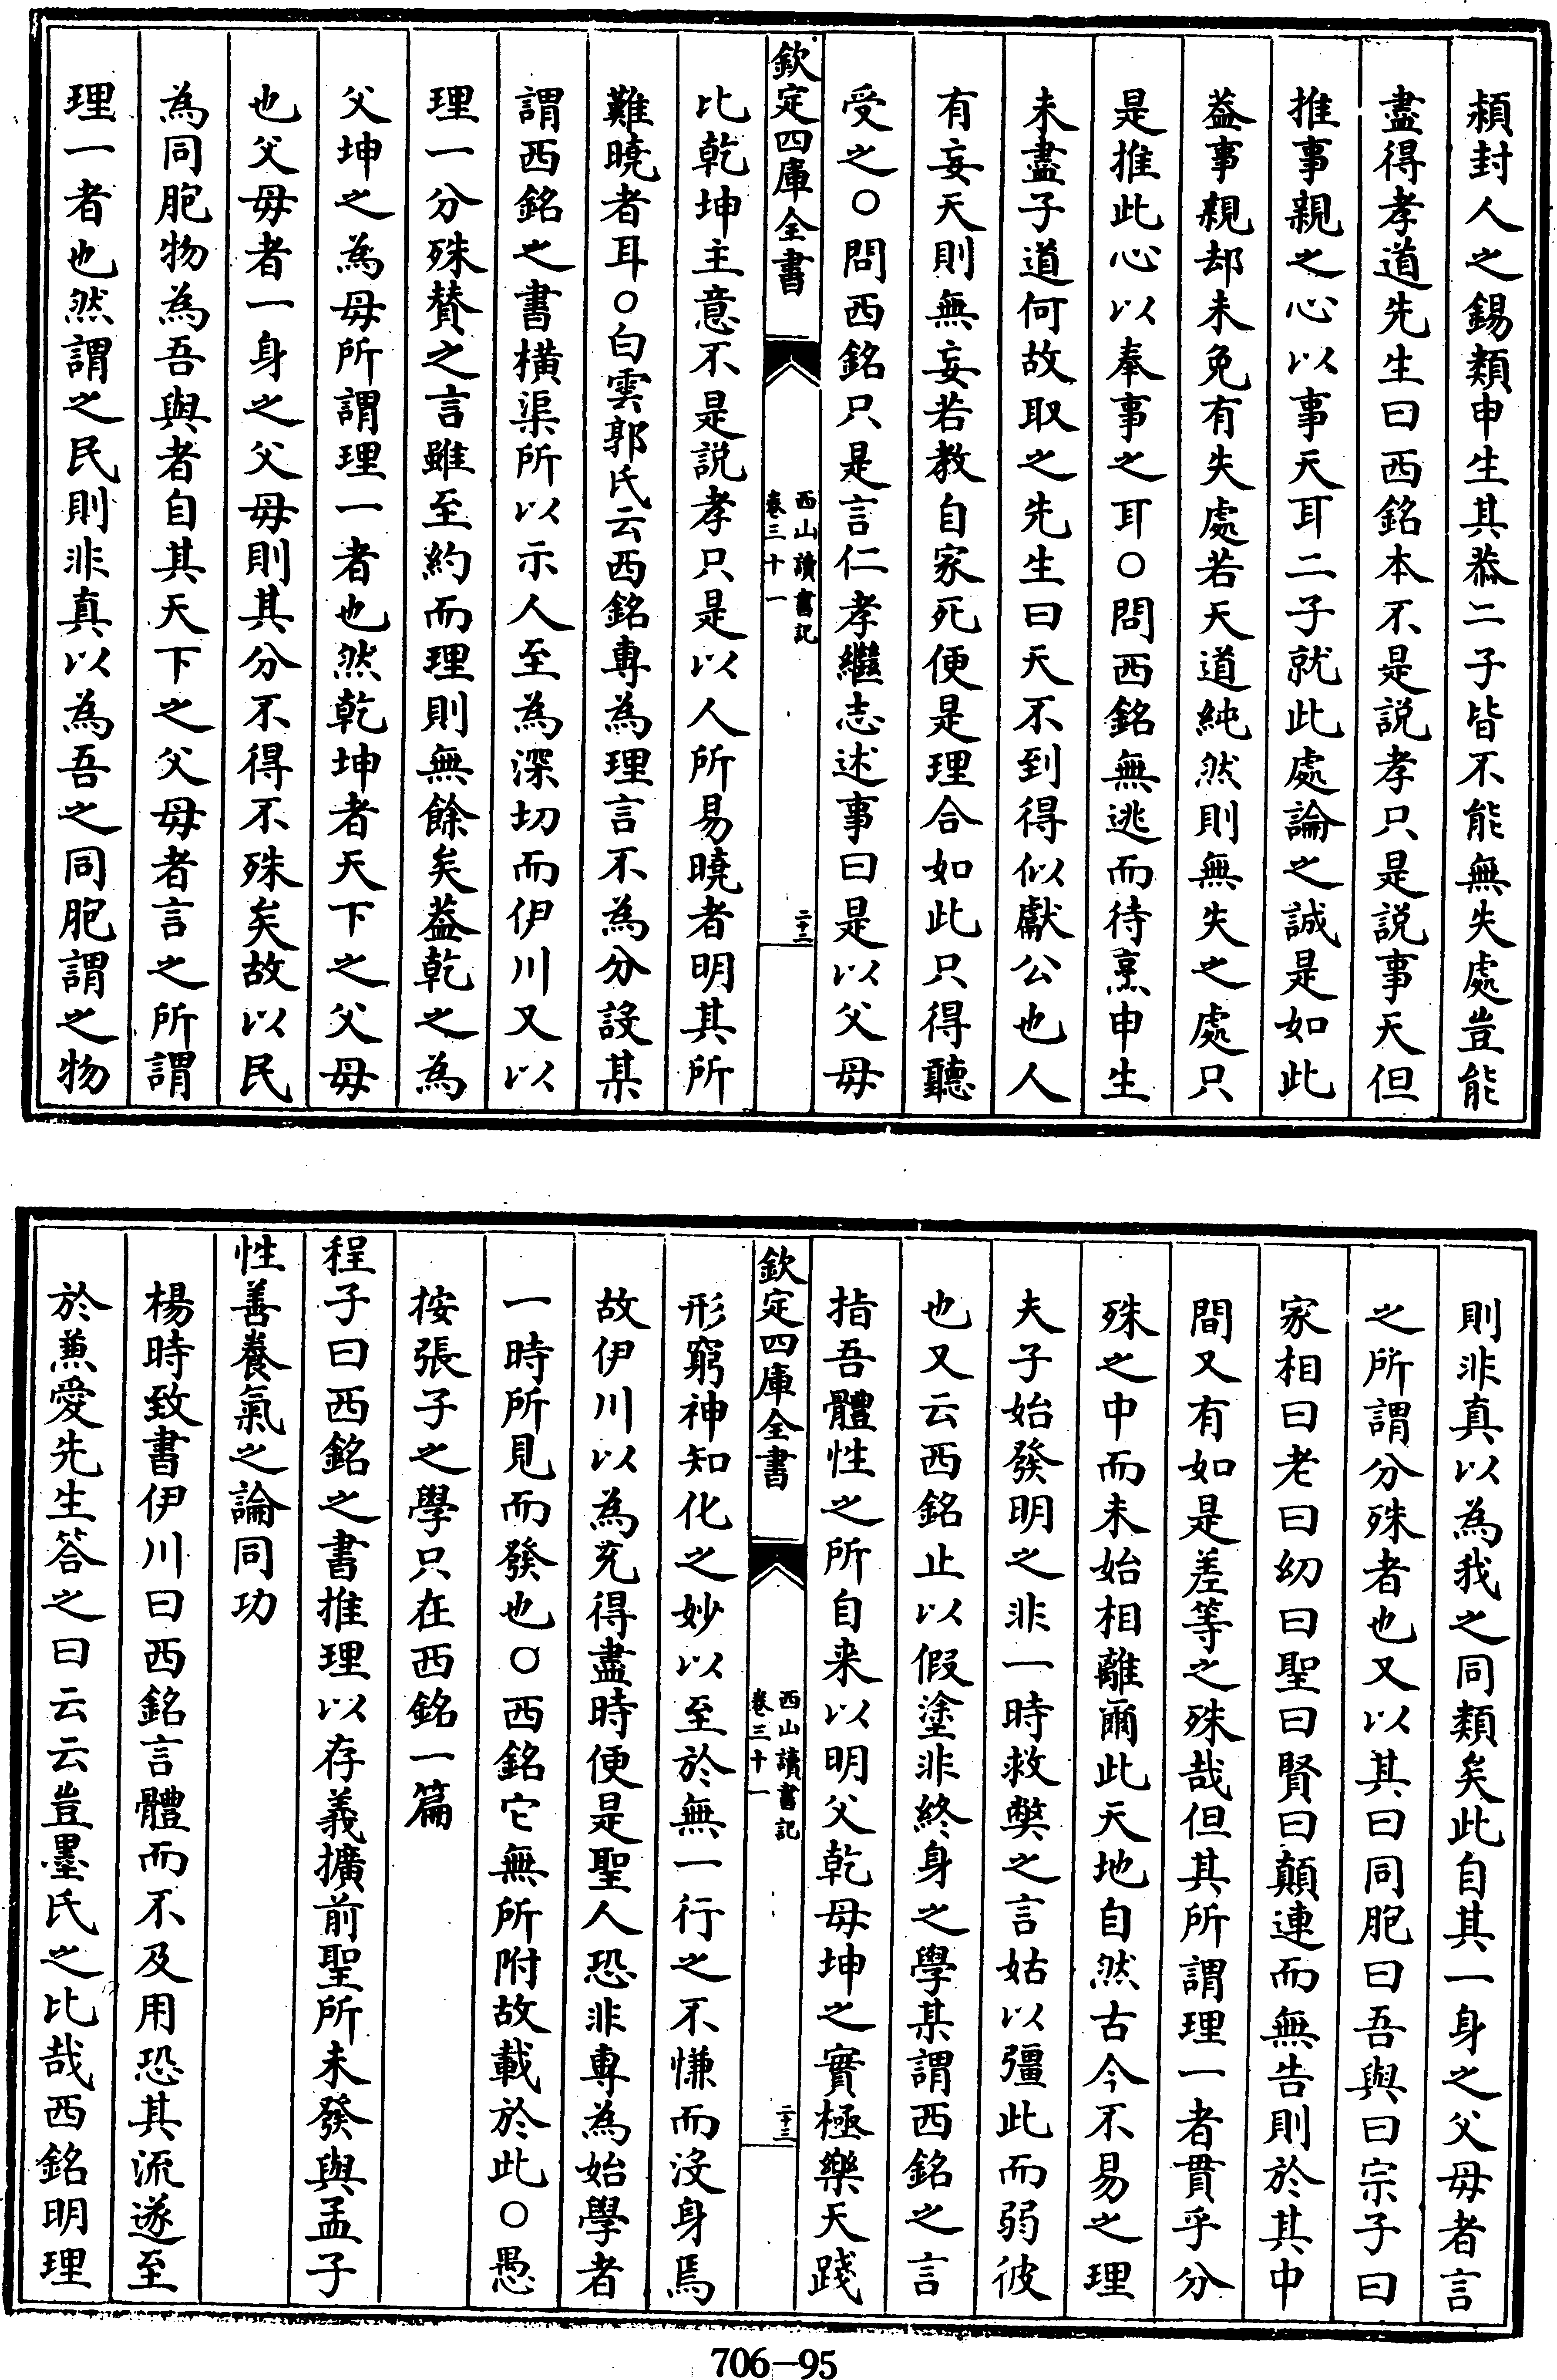 潁封人之錫類申生其恭二子皆不能無失處豈能
盡得孝道先生曰西銘本不是說孝只是說事天但
推事親之心以事天耳二子就此處論之誠是如此
葢事親却未免有失處若天道純然則無失之處只
是推此心以奉事之耳○問西銘無逃而待烹申生
未盡子道何故取之先生曰天不到得似獻公也人
有妄天則無妄若教自家死便是理合如此只得聽
受之○問西銘只是言仁孝繼志述事曰是以父母
欽定四庫全書
西山讀書記
卷三十一
二十三
比乾坤主意不是説孝只是以人所易曉者明其所
難曉者耳○白雲郭氏云西銘專為理言不為分設某
謂西銘之書橫渠所以示人至為深切而伊川又以
理一分殊贊之言雖至約而理則無餘矣葢乾之為
父坤之為母所謂理一者也然乾坤者天下之父母
也父母者一身之父母則其分不得不殊矣故以民
為同胞物為吾與者自其天下之父母者言之所謂
理一者也然謂之民則非真以為吾之同胞謂之物
則非真以為我之同類矣此自其一身之父母者言
之所謂分殊者也又以其曰同胞曰吾與曰宗子曰
家相曰老曰幼曰聖曰賢曰顛連而無告則於其中
間又有如是差等之殊哉但其所謂理一者貫乎分
殊之中而未始相離爾此天地自然古今不易之理
夫子始發明之非一時救獘之言姑以彊此而弱彼
也又云西銘止以假塗非終身之學某謂西銘之言
指吾體性之所自来以明父乾母坤之實極樂天踐
欽定四庫全書
西山讀書記
卷三十一
二十三
形窮神知化之妙以至於無一行之不慊而沒身焉
故伊川以為充得盡時便是聖人恐非專為始學者
一時所見而發也○西銘它無所附故載於此○愚
按張子之學只在西銘一篇
程子曰西銘之書推理以存義擴前聖所未發與孟子
性善養氣之論同功
楊時致書伊川曰西銘言體而不及用恐其流遂至
於兼愛先生答之曰云云豈墨氏之比哉西銘明理
706-95